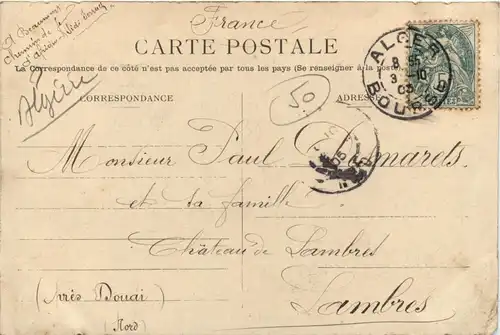 France
CARTE POSTALE
La Correspondance de ce côté n'est pas acceptée par tous les pays (Se renseigner à la poste)
Algérie
CORRESPONDANCE
ADRESSE
50
ALGER
8 55
3 10
03
BOURSE
5
Monsieur Paul Desmarets
et sa famille
Château de Lambres
(Près Douai) Lambres
(Nord)